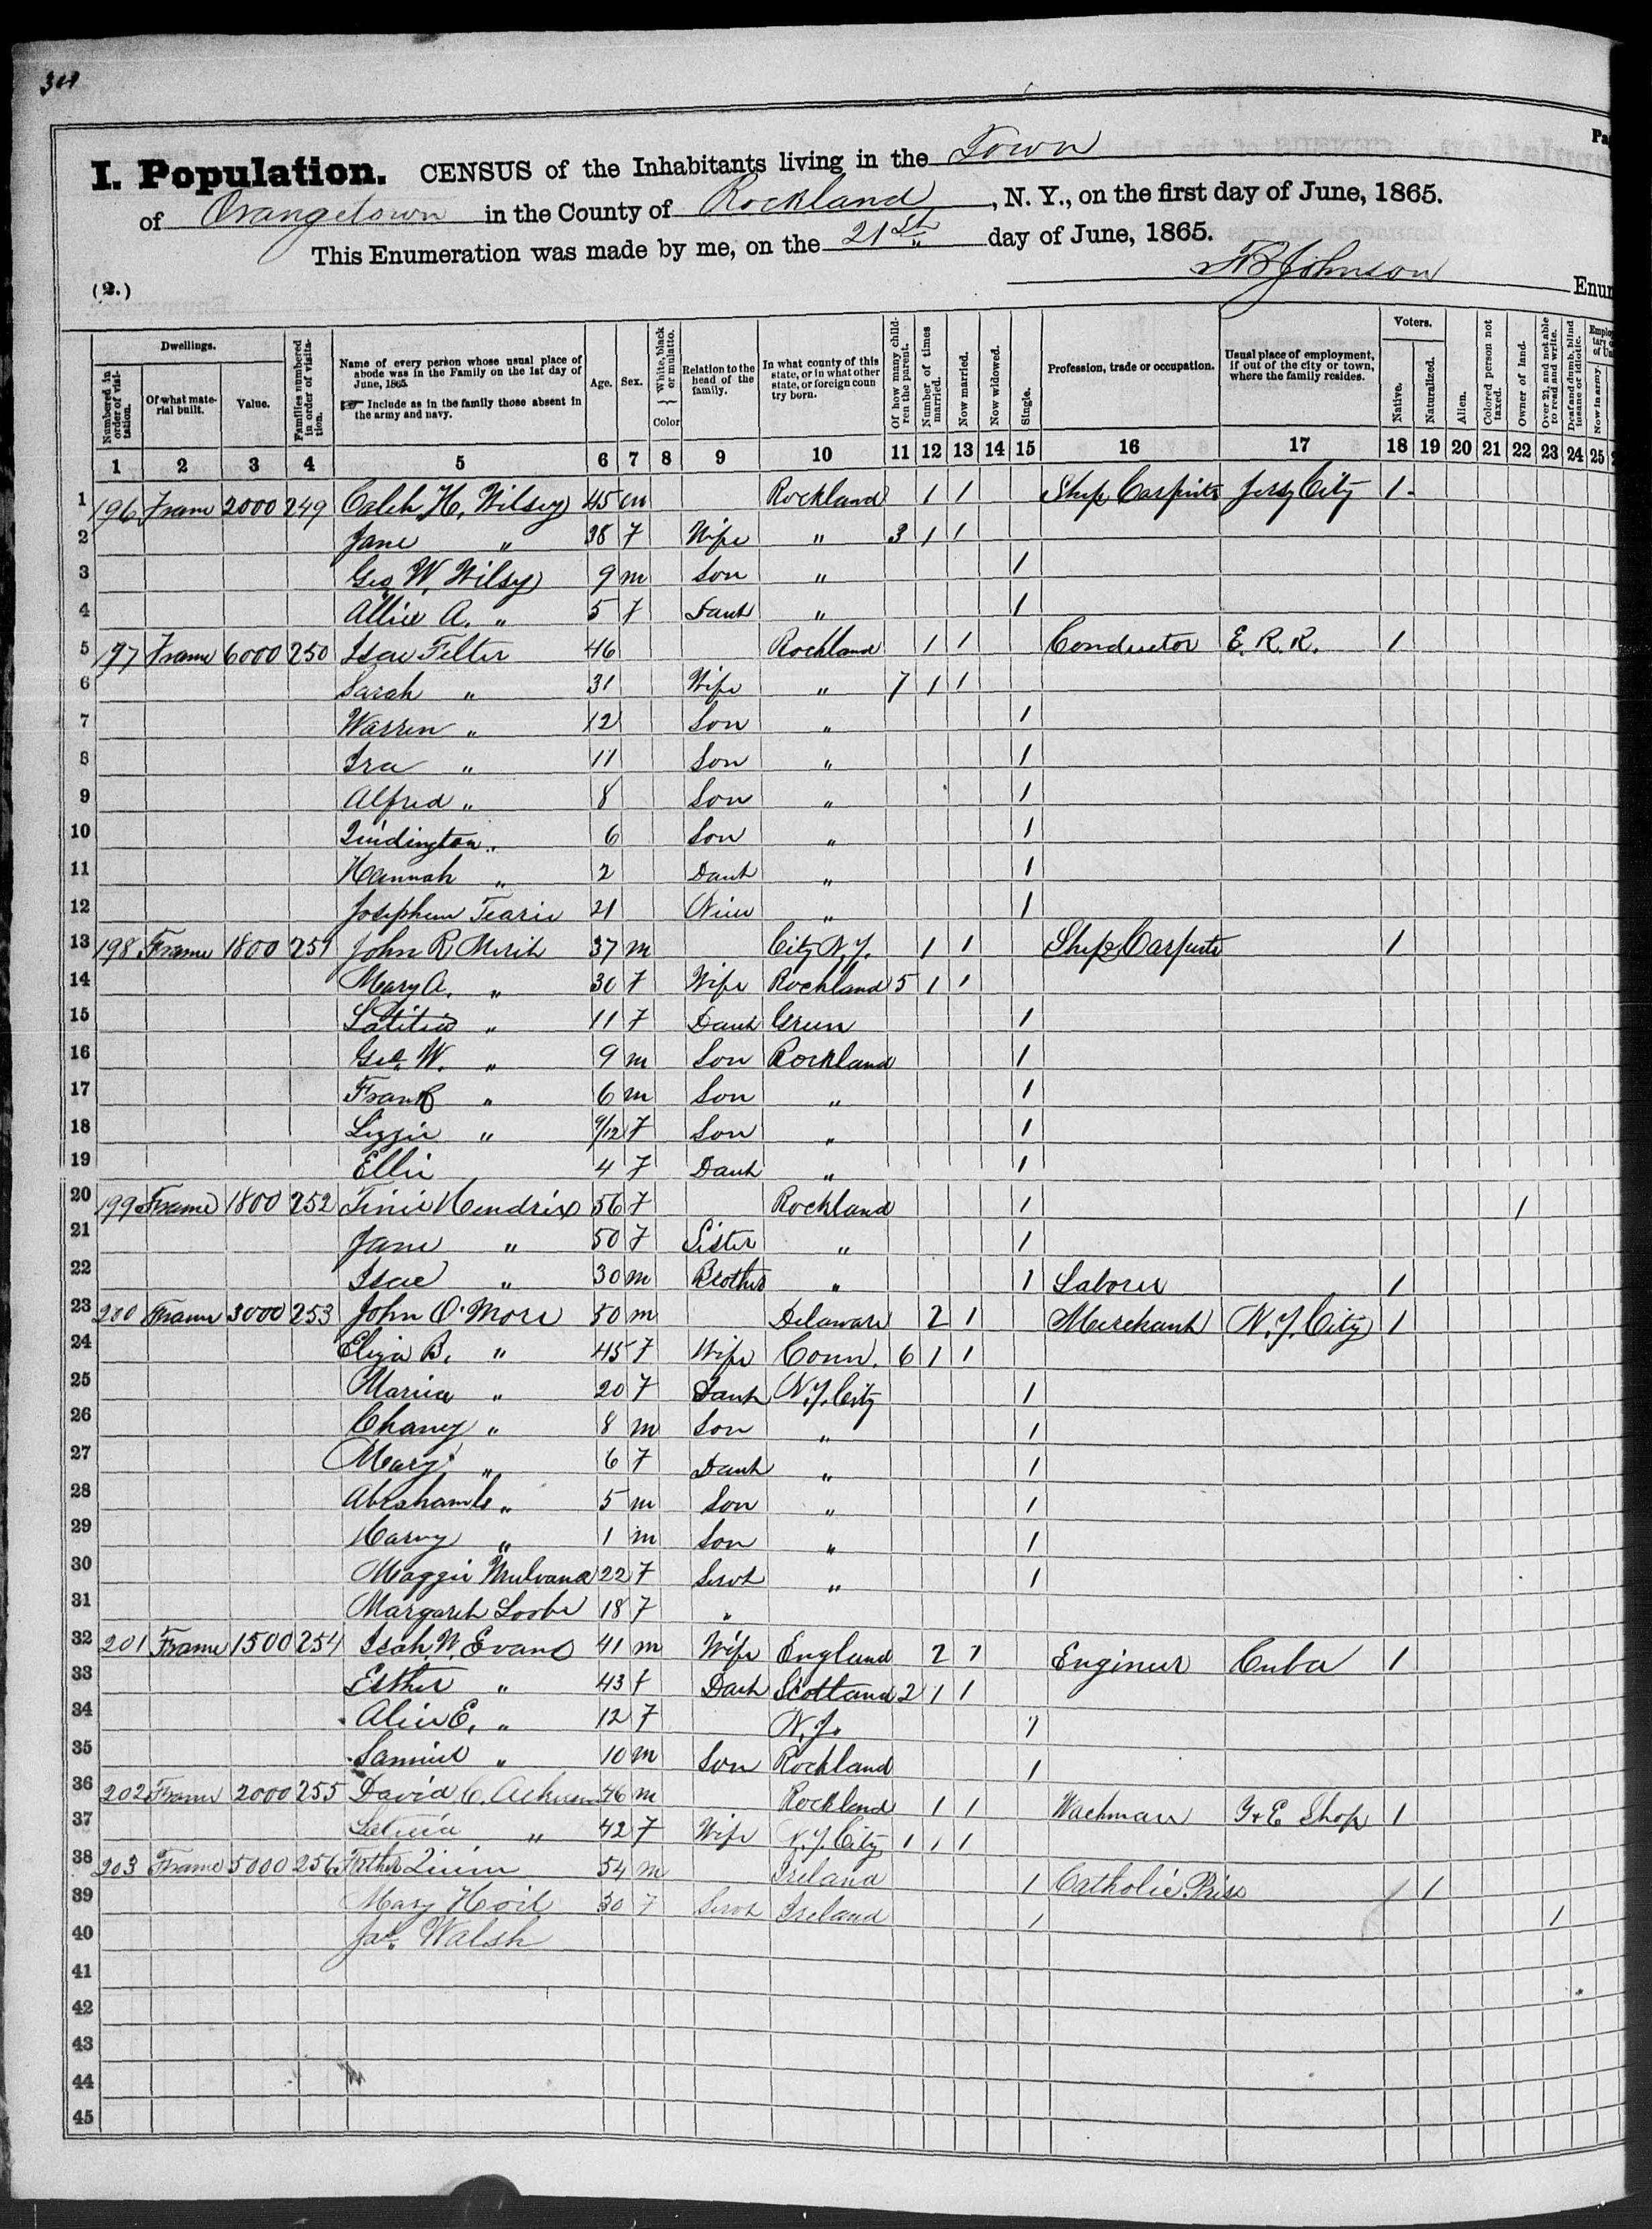 I. Population. CENSUS of the Inhabitants living in the Town
of Orangetown in the County of Rockland, N. Y., on the first day of June, 1865.
This Enumeration was made by me, on the 21st day of June, 1865.
(2.) Johnson Enum
Dwellings. Voters.
Numbered in order of visitation. Of what material built. Value. Families numbered in order of visitation. Name of every person whose usual place of abode was in the Family on the 1st day of June, 1865. ☞ Include as in the family those absent in the army and navy. Age. Sex. White, black or mulatto. Color Relation to the head of the family. In what county of this state, or in what other state, or foreign coun try born. Of how many children the parent. Number of times married. Now married. Now widowed. Single. Profession, trade or occupation. Usual place of employment, if out of the city or town, where the family resides. Native. Naturalized. Alien. Colored person not taxed. Owner of land. Over 21 and not able to read and write. Deaf and dumb, blind insane or idiotic. Now in army.
1 2 3 4 5 6 7 8 9 10 11 12 13 14 15 16 17 18 19 20 21 22 23 24 25
1 196 Frame 2000 249 Caleb H. Wilsey 45 m Rockland 1 1 Ship Carpinter Jersy City 1
2 Jane " 38 F Wife " 3 1 1
3 Geo W. Wilsy 9 m Son " 1
4 Allie A. " 5 F Dauh " 1
5 197 Frame 6000 250 Isac Felter 46 Rockland 1 1 Conductor E. R. R. 1
6 Sarah " 31 Wife " 7 1 1
7 Warren " 12 Son " 1
8 Ira " 11 Son " 1
9 Alfred " 8 Son " 1
10 " 6 Son " 1
11 Hannah " 2 Dauh " 1
12 21 " 1
13 198 Frame 1800 251 John R. 37 m City N.Y. 1 1 Ship Carpinter 1
14 Mary A. " 30 F Wife Rockland 5 1 1
15 Latitia " 11 F Dauh Green 1
16 Geo. W. " 9 m Son Rockland 1
17 Frank " 6 m Son " 1
18 Lizzie " 9/12 F Son " 1
19 Ellie 4 F Dauh " 1
20 199 Frame 1800 252 Tinie Hendrix 56 F Rockland 1 1
21 Jane " 50 F Sister " 1
22 Isac " 30 m Brother " 1 Laborer 1
23 200 Frame 3000 253 John O. More 50 m Delaware 2 1 Merchant N.Y. City 1
24 Eliza B. " 45 F Wife Conn. 6 1 1
25 Maria " 20 F Dauh N.Y. City 1
26 " 8 m Son " 1
27 Mary " 6 F Dauh " 1
28 " 5 m Son " 1
29 Harvy " 1 m Son " 1
30 Maggie Mulvana 22 F Servt " 1
31 Margareh 18 F "
32 201 Frame 1500 254 W. Evans 41 m Wife England 2 1 Engineer Cuba 1
33 Esther " 43 f Dauh Scotland 2 1 1
34 Alice E. " 12 F N.J. 1
35 Samuel " 10 m Son Rockland 1
36 202 Frame 2000 255 David C. 46 m Rockland 1 1 Wachman 1
37 Leticia " 42 F Wife N.Y. City 1 1 1
38 203 Frame 5000 256 Father Quinn 54 m Ireland 1 Catholic 1
39 Mary 30 F Servt Ireland 1 1
40 Jas. Walsh
41
42
43
44
45